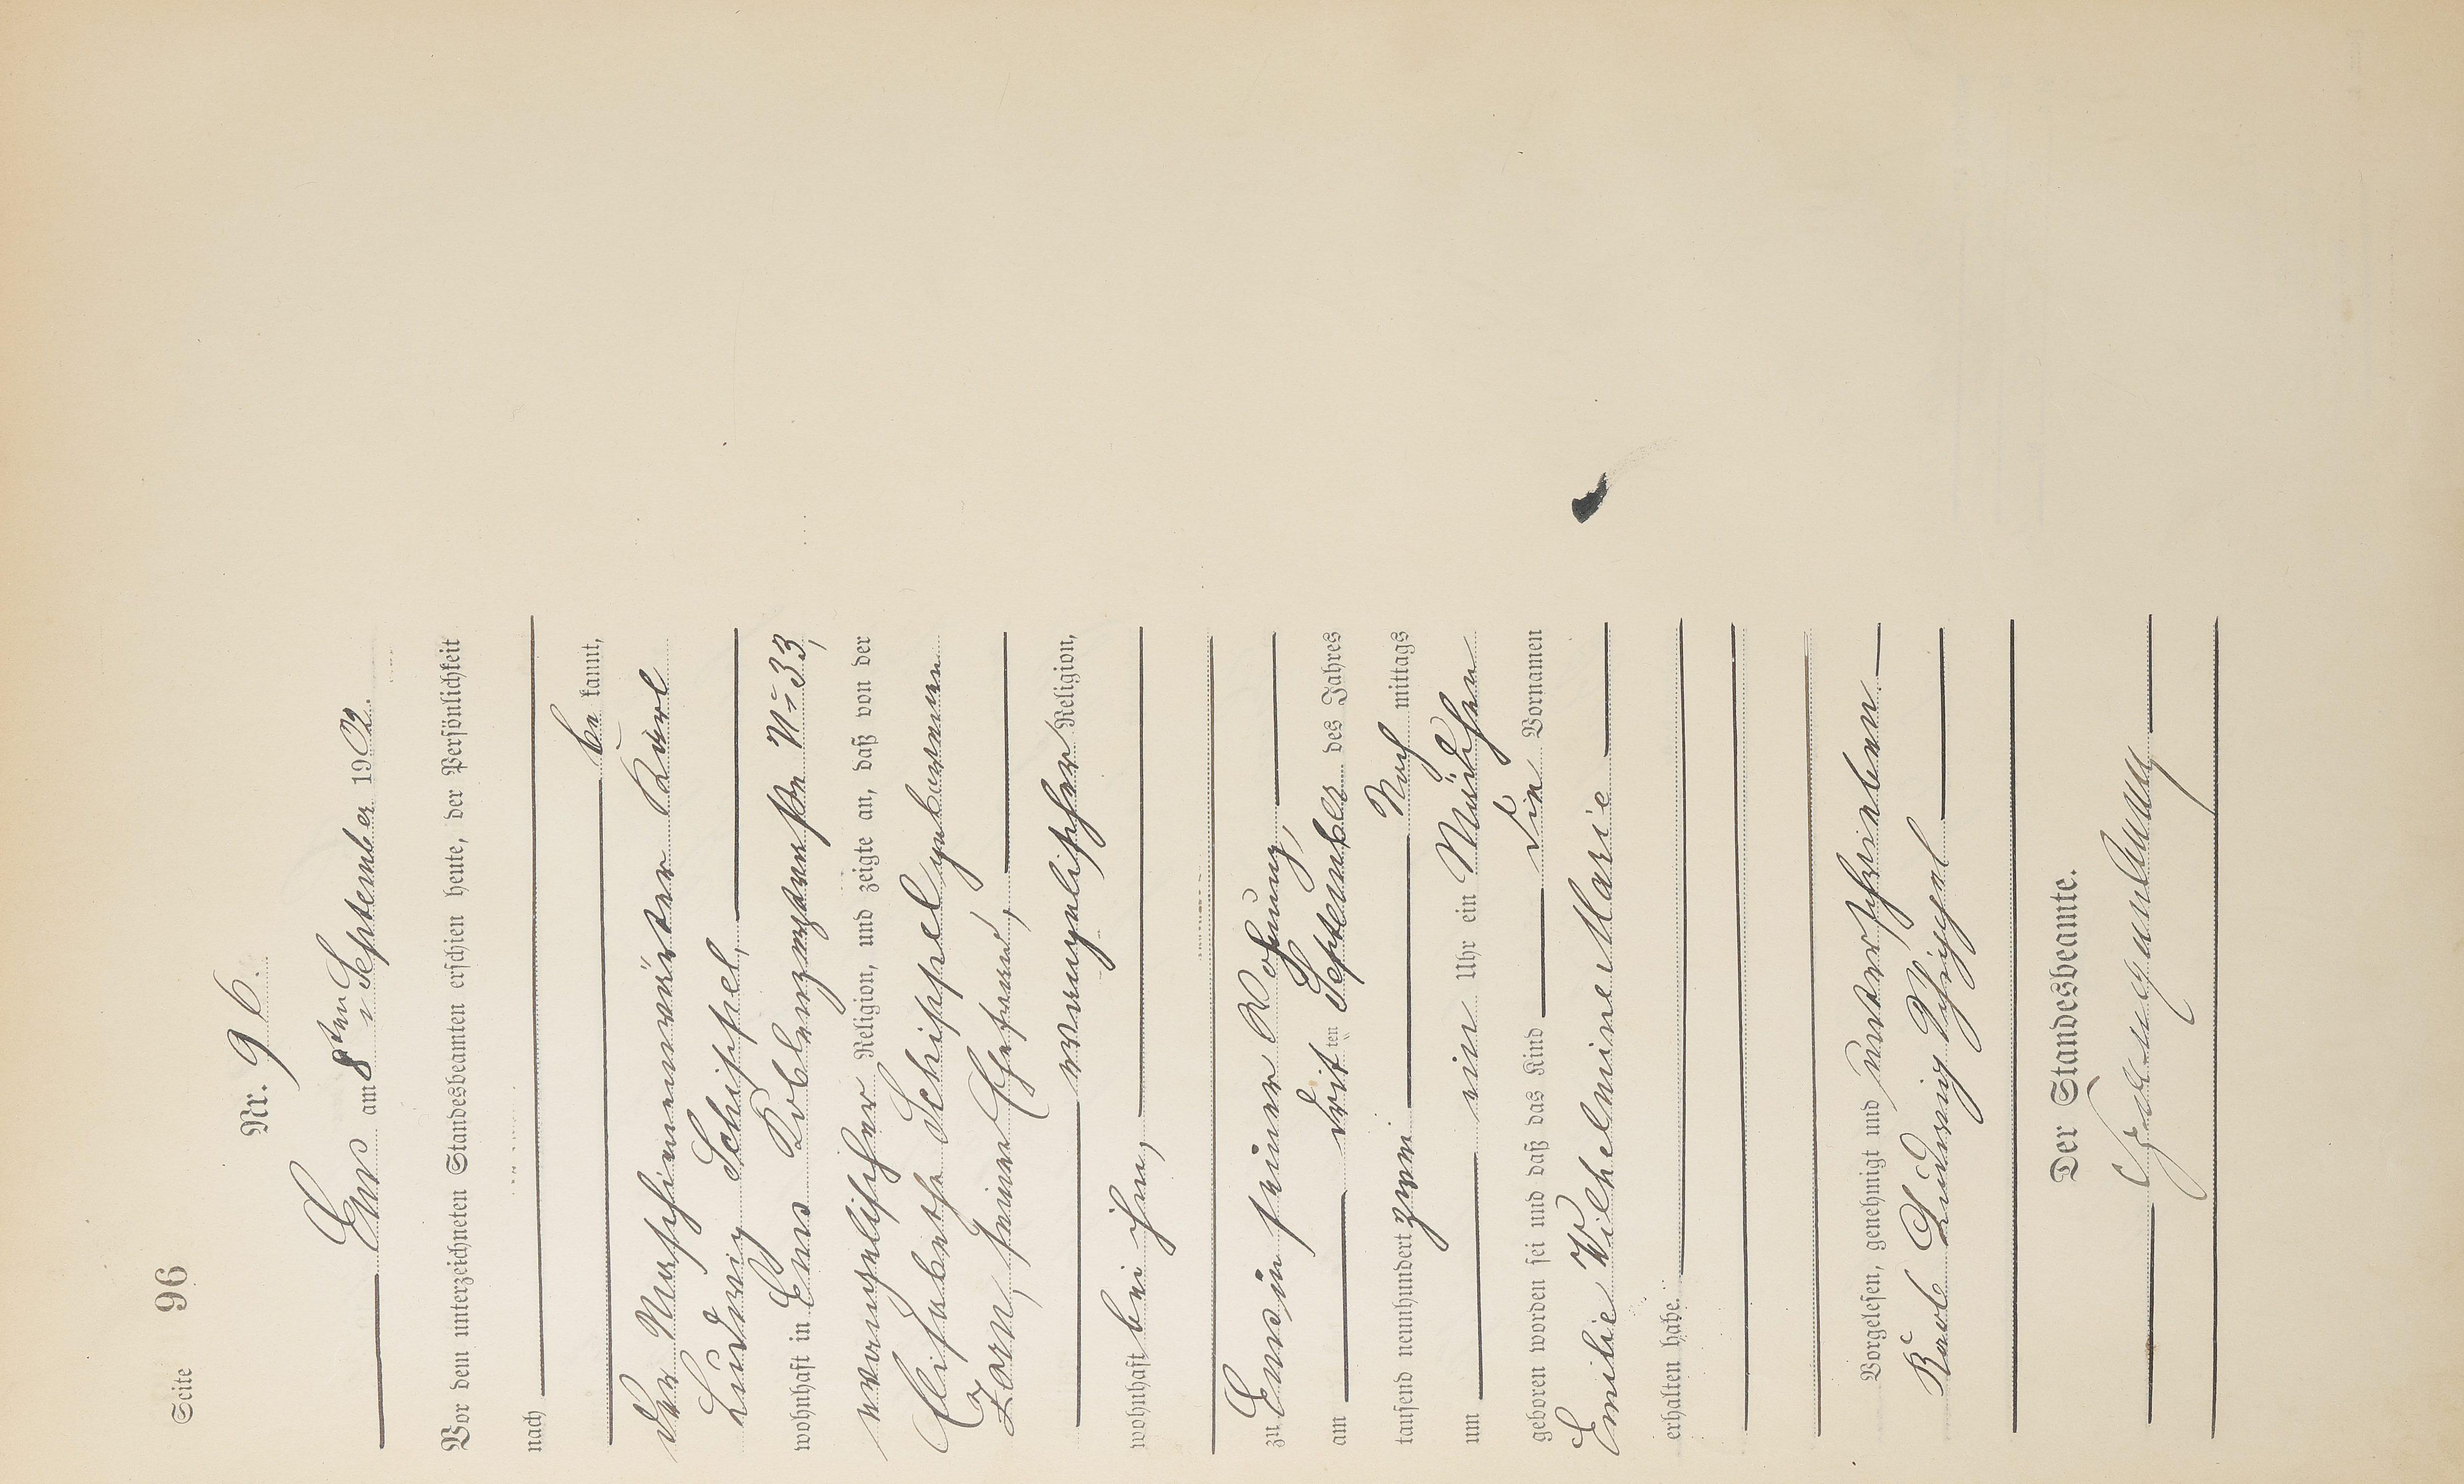 Seite 96
Nr. 96.
Ems am 8ten September 1902.
Vor dem unterzeichneten Standesbeamten erschien heute, der Persönlichkeit
nach
be kannt,
der Maschinenwärter Karl
Ludwig Schippel,
wohnhaft in Ems Koblenzerstraße No 33,
evangelischer Religion, und zeigte an, daß von der
Elisabethe Schippel geborenen
Zorn, seiner Ehefrau,
evangelischer Religion,
wohnhaft bei ihm,
zu Ems in seiner Wohnung,
am dritten September des Jahres
tausend neunhundert zwei Nach mittags
um ein Uhr ein Mädchen
geboren worden sei und daß das Kind die Vornamen
Emilie Wilhelmine Marie
erhalten habe.
Vorgelesen, genehmigt und unterschrieben
Karl Ludwig Schippel
Der Standesbeamte.